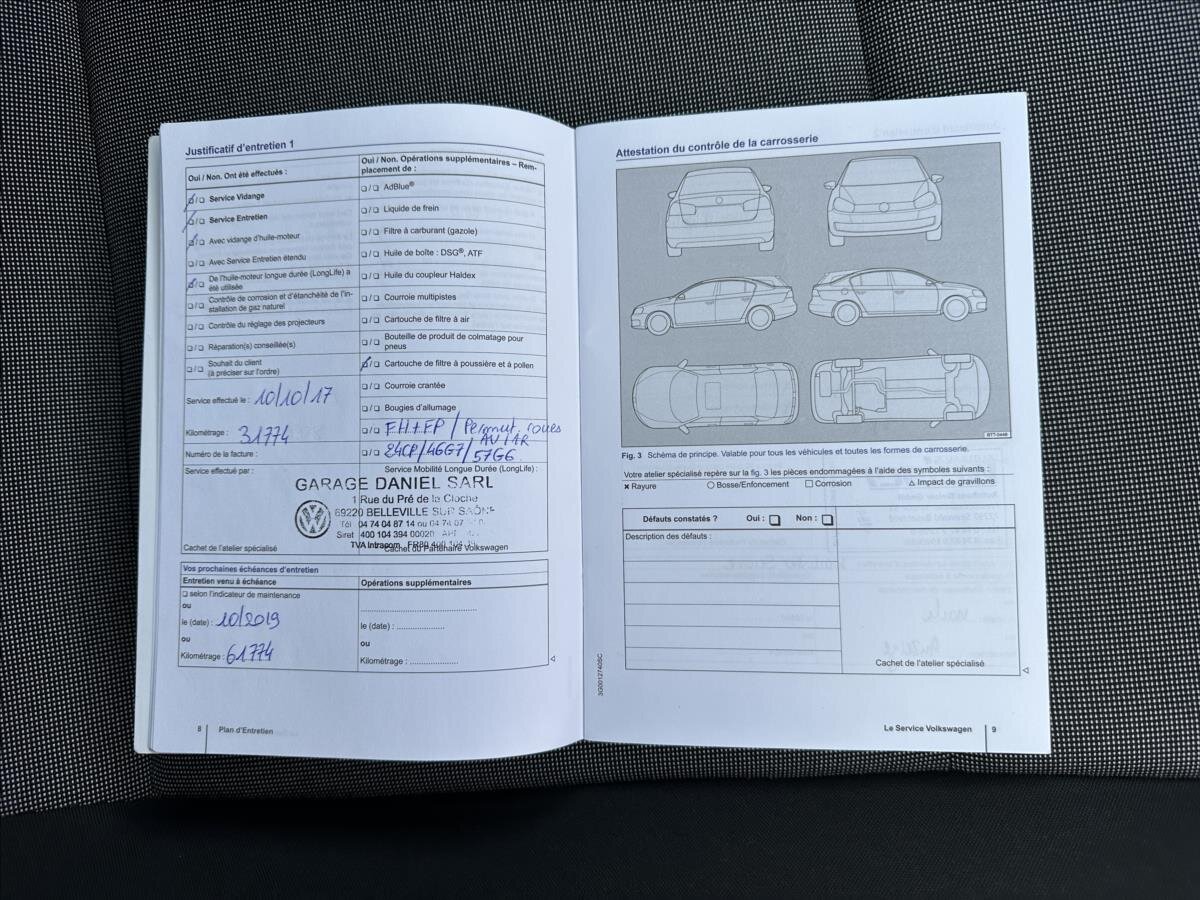 Justificatif d'entretien 1
Oui / Non. Ont été effectués :
☑/❑ Service Vidange
☑/❑ Service Entretien
☑/❑ Avec vidange d'huile-moteur
❑/❑ Avec Service Entretien étendu
☑/❑ De l'huile-moteur longue durée (LongLife) a
été utilisée
❑/❑ Contrôle de corrosion et d'étanchéité de l'ins-
tallation de gaz naturel
❑/❑ Contrôle du réglage des projecteurs
❑/❑ Réparation(s) conseillée(s)
❑/❑ Souhait du client
(à préciser sur l'ordre)
Service effectué le : 10/10/17
Kilométrage : 31774
Numéro de la facture :
Service effectué par :
Oui / Non. Opérations supplémentaires – Rem-
placement de :
❑/❑ AdBlue®
❑/❑ Liquide de frein
❑/❑ Filtre à carburant (gazole)
❑/❑ Huile de boîte : DSG®, ATF
❑/❑ Huile du coupleur Haldex
❑/❑ Courroie multipistes
❑/❑ Cartouche de filtre à air
❑/❑ Bouteille de produit de colmatage pour
pneus
☑/❑ Cartouche de filtre à poussière et à pollen
❑/❑ Courroie crantée
❑/❑ Bougies d'allumage
❑/❑ FH+FP / Permut. roues
AV/AR
❑/❑ 24CP/46G7/57G6
Service Mobilité Longue Durée (LongLife) :
GARAGE DANIEL SARL
1 Rue du Pré de la Cloche
69220 BELLEVILLE SUR SAÔNE
Tél 04 74 04 87 14 ou 04 74 07
Siret 400 104 394 00020
TVA Intracom.
Cachet de l'atelier spécialisé
Cachet du Partenaire Volkswagen
Vos prochaines échéances d'entretien
Entretien venu à échéance
❑ selon l'indicateur de maintenance
ou
le (date) : 10/2019
ou
Kilométrage : 61774
Opérations supplémentaires
le (date) :
ou
Kilométrage :
8 | Plan d'Entretien
Attestation du contrôle de la carrosserie
BTT-0448
Fig. 3 Schéma de principe. Valable pour tous les véhicules et toutes les formes de carrosserie.
Votre atelier spécialisé repère sur la fig. 3 les pièces endommagées à l'aide des symboles suivants :
× Rayure ○ Bosse/Enfoncement □ Corrosion △ Impact de gravillons
Défauts constatés ? Oui : ❑ Non : ❑
Description des défauts :
Cachet de l'atelier spécialisé
3G0012740SC
Le Service Volkswagen | 9